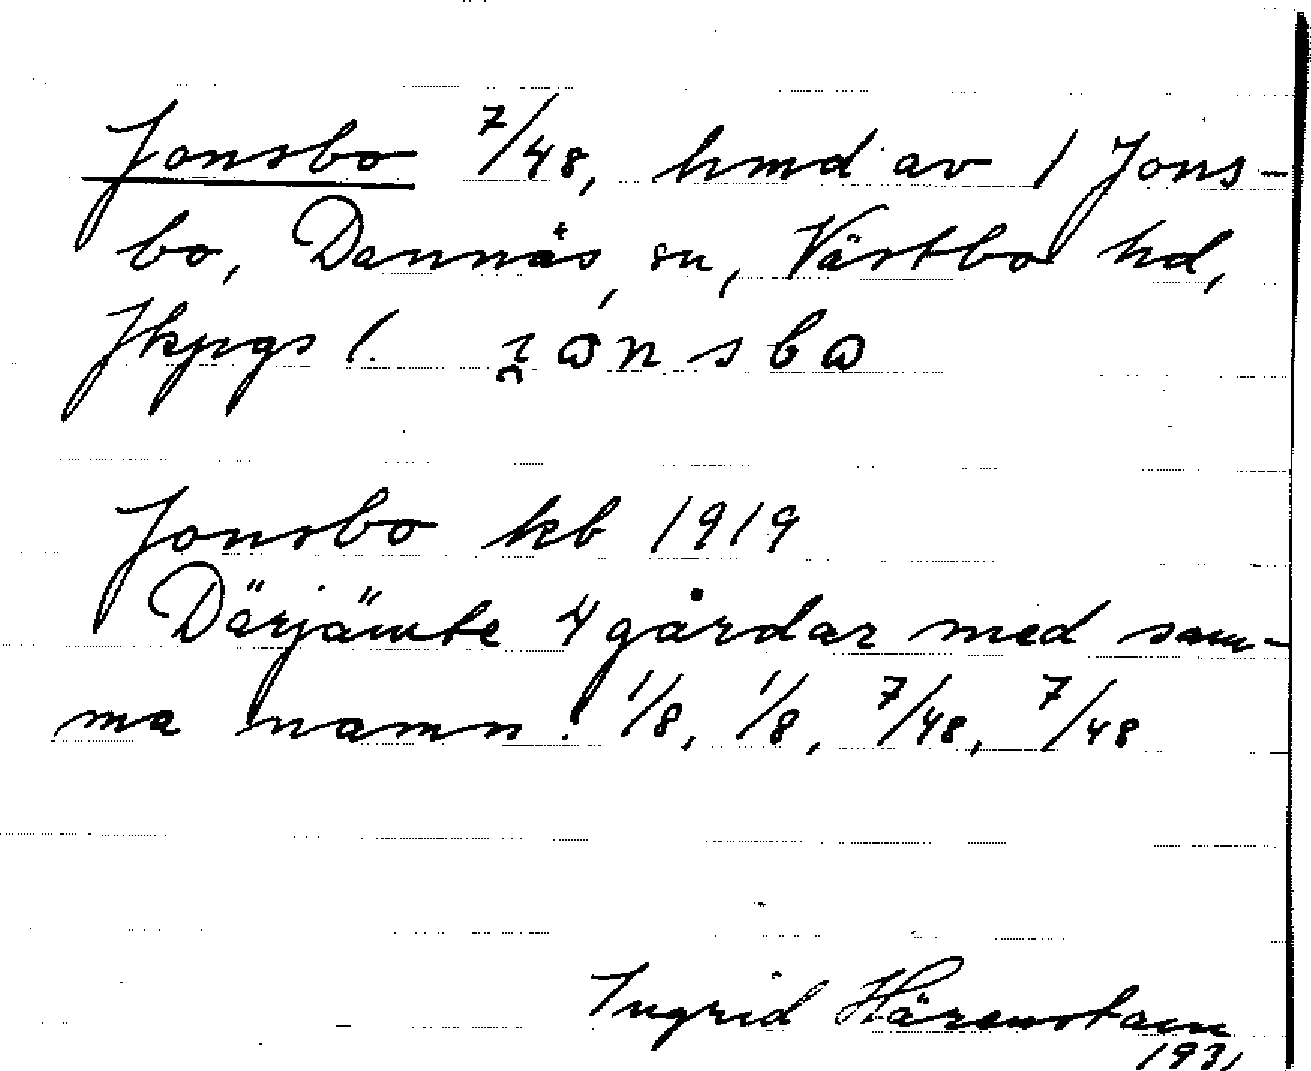 Jonsbo 7/48, hmd av 1 Jons-
bo, Dannäs sn, Västbo hd,
Jkpgs l.
Jonsbo kb 1919
Därjämte 4 gårdar med sam-
ma namn: 1/8, 1/8, 7/48, 7/48
Ingrid Härenstam
1931